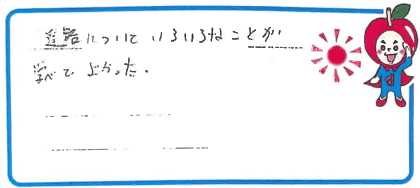 進路について いろいろなことが
学べて よかった.